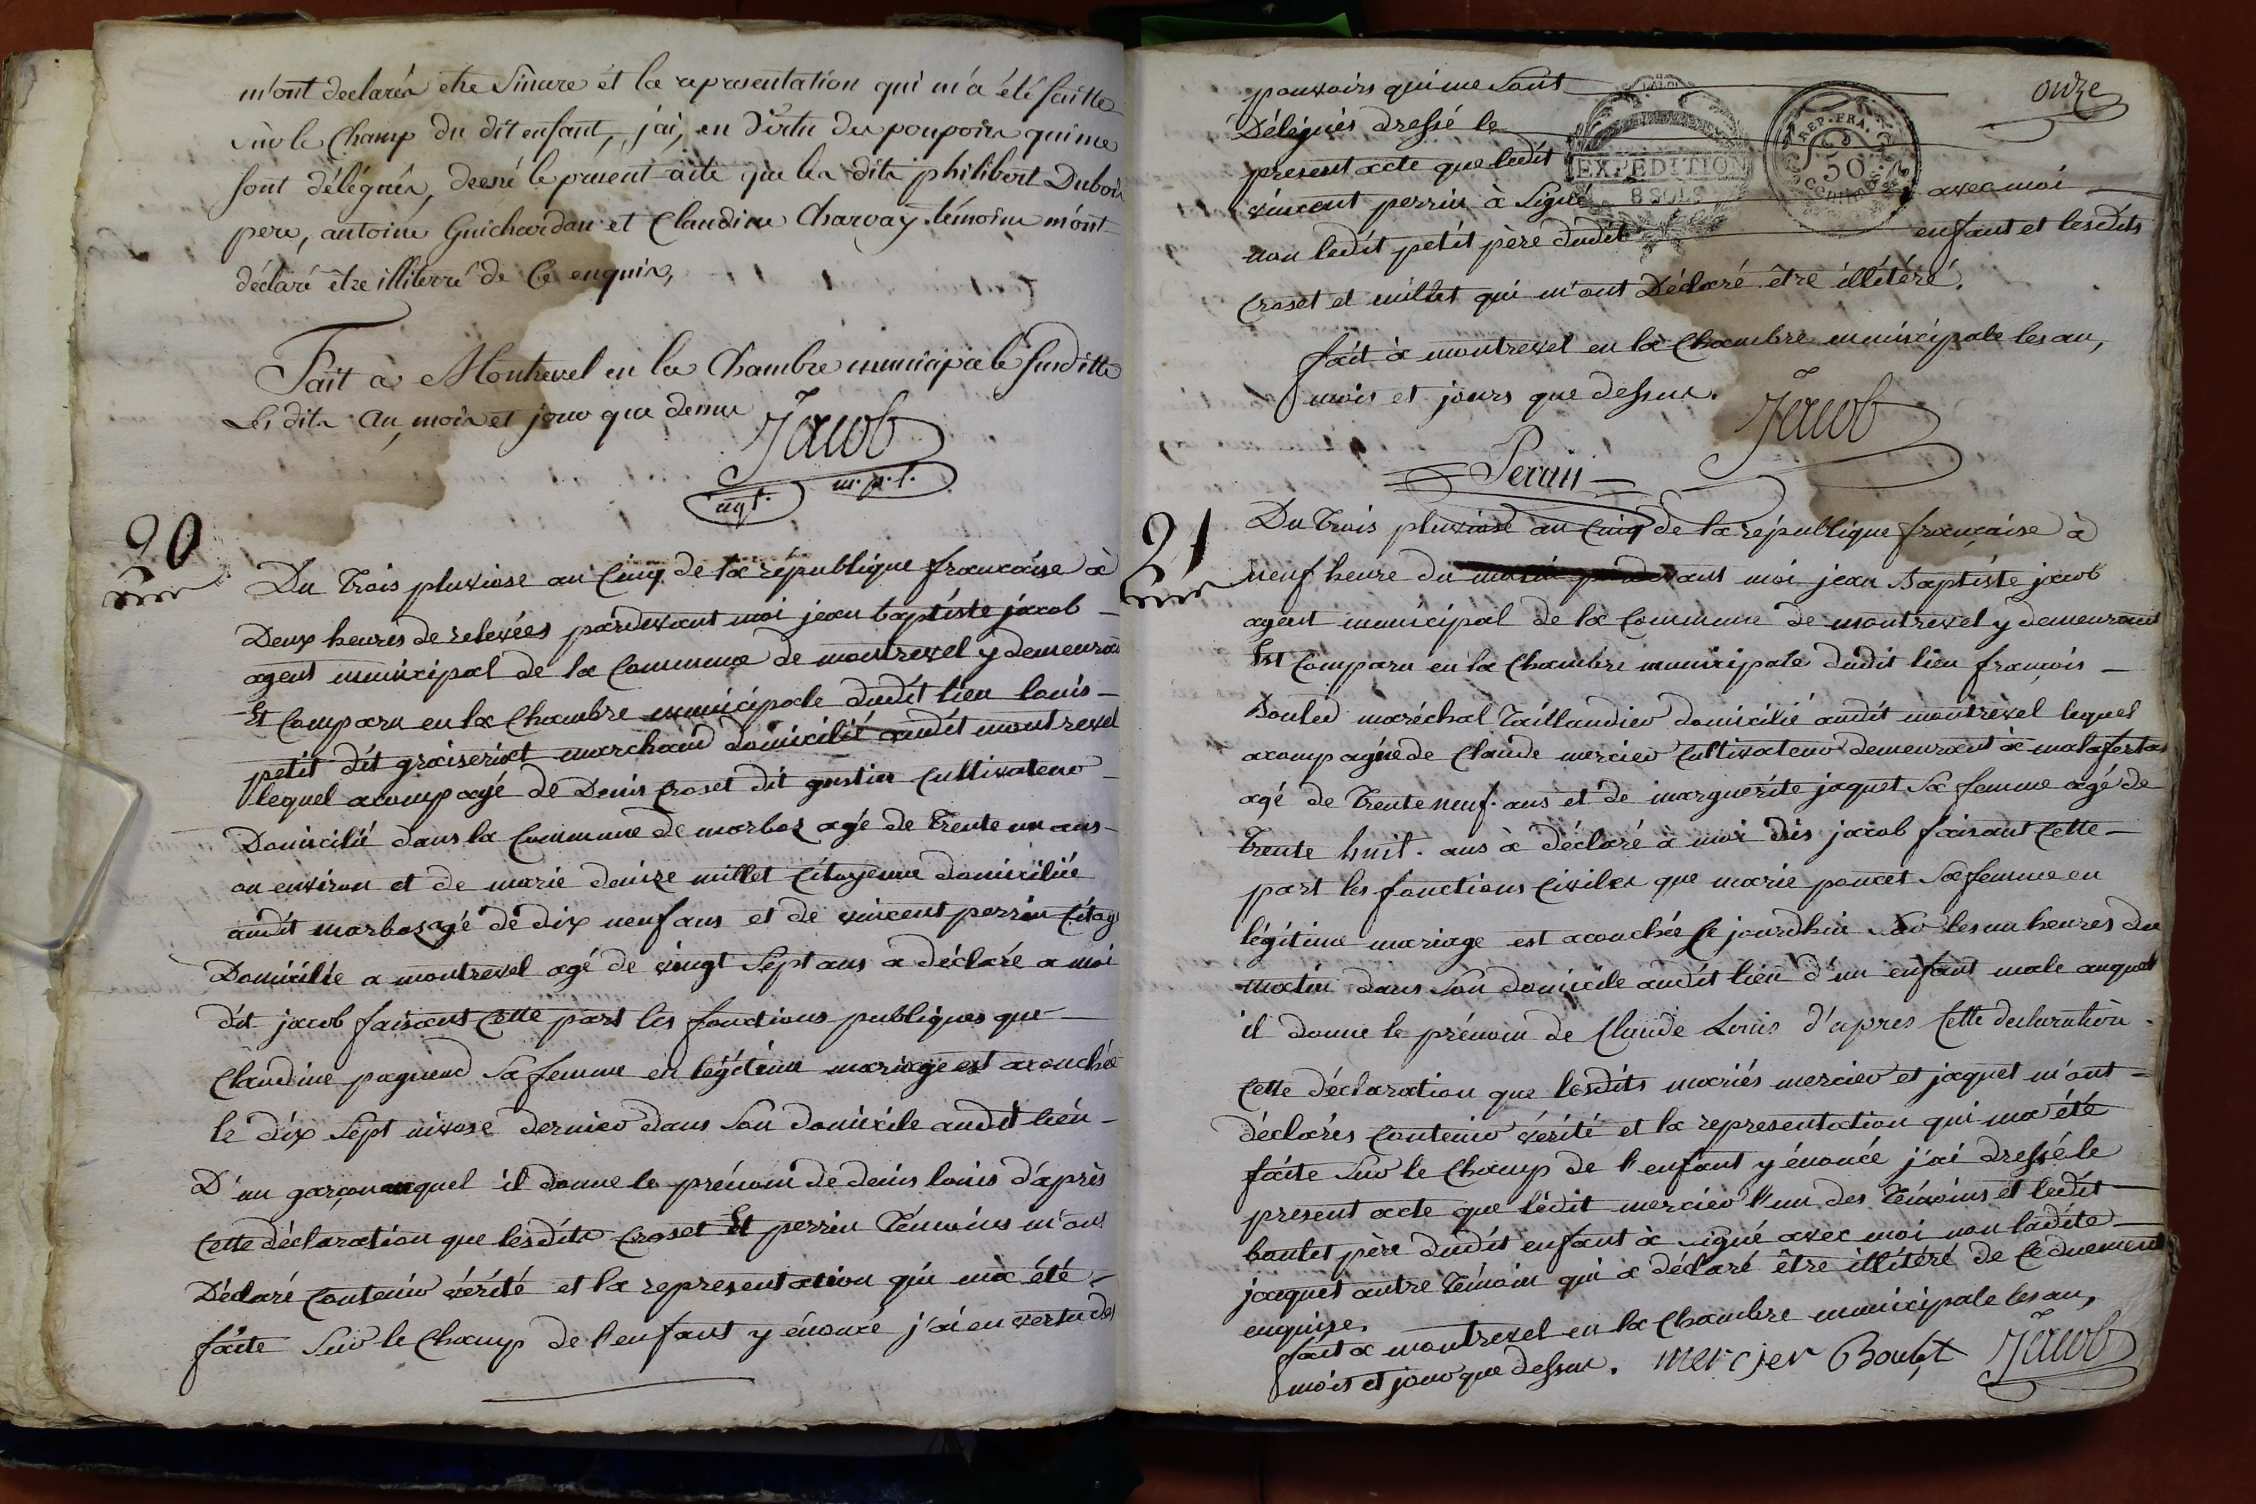 m'ont declarés etre Sincere et la representation qui m'a été faitte
sur le Champ du dit enfant, j'ai, en Vertu des pouvoirs qui me
sont délégués, dressé le présent acte que les dits philibert Dubois
pere, antoine Guichardan et Claudine Charvay témoins m'ont
déclaré être illiterré de Ce enquis,
Fait à Montrevel en la Chambre municipale susditte
Les dits an, mois et jour que dessus
Jacob
agt. m.p.l.
20
Du trois pluviose an Cinq de la république française à
Deux heures de relevées pardevant moi jean baptiste jacob
agent municipal de la Commune de montrevel y demeurant
Est Comparu en la Chambre municipale dudit lieu louis
petit dit graiserixt marchand domicilié audit montrevel
lequel acompagé de Denis Croset dit gustin Cultivateur
Domicilié dans la Commune de marboz agé de trente un ans
ou environ et de marie denize millet Citoyenne domiciliée
audit marbos agé de dix neuf ans et de vincent perrin Citoy
Domicilie a montrevel agé de vingt Sept ans a déclaré a moi
dit jacob faisant Cette part les fonctions publiques que
Claudine paguend Sa femme en légitime mariage est acouchée
le dix Sept nivose dernier dans Son domicile audit lieu
D'un garçon auquel il donne le prénom de denis louis d'après
Cette déclaration que lesdits Croset Et perrin témoins m'ont
Déclaré Contenir vérité et la representation qui ma été
faite Sur le Champ de l'enfant y énoncé j'ai en vertu des
onze
pouvoirs qui me Sont
Délégués dressé le
present acte que ledit
vincent perrin à Signé avec moi
non ledit petit père dudit enfant et lesdits
Croset et millet qui m'ont Déclaré être illétéré.
EXPEDITION
8 SOLS
REP. FRA.
50
CENTIMES
fait à montrevel en la Chambre municipale les an,
mois et jours que dessus.
Jacob
Perrin
21
Du trois pluviose an Cinq de la république française à
neuf heure du matin pardevant moi jean Baptiste jacob
agent municipal de la Commune de montrevel y demeurant
Est Comparu en la Chambre municipale dudit lieu françois
Boulet maréchal Taillandier domicilié audit montrevel lequel
acompagné de Claude mercier Cultivateur demeurant à malafertas
agé de trente neuf. ans et de marguerite jaquet Sa femme agé de
trente huit. ans à déclaré à moi dis jacob faisant Cette
part les fonctions Civiles que marie poncet Sa femme en
légitime mariage est acouchée Ce jourdhui Sur les un heures du
matin dans Son domicile audit lieu d'un enfant male auquel
il donne le prénom de Claude Louis d'apres Cette declaration
Cette déclaration que lesdits mariés mercier et jaquet m'ont
déclarés Contenir vérité et la representation qui ma été
faite Sur le Champ de l'enfant y énoncé j'ai dressé le
present acte que ledit mercier l'un des témoins et ledit
boulet père dudit enfant à signé avec moi non ladite
jaquet autre témoin qui a déclaré être illétéré de Ce duement
enquise.
fait a montrevel en la Chambre municipale les an,
mois et jour que dessus. mercier Boulet Jacob